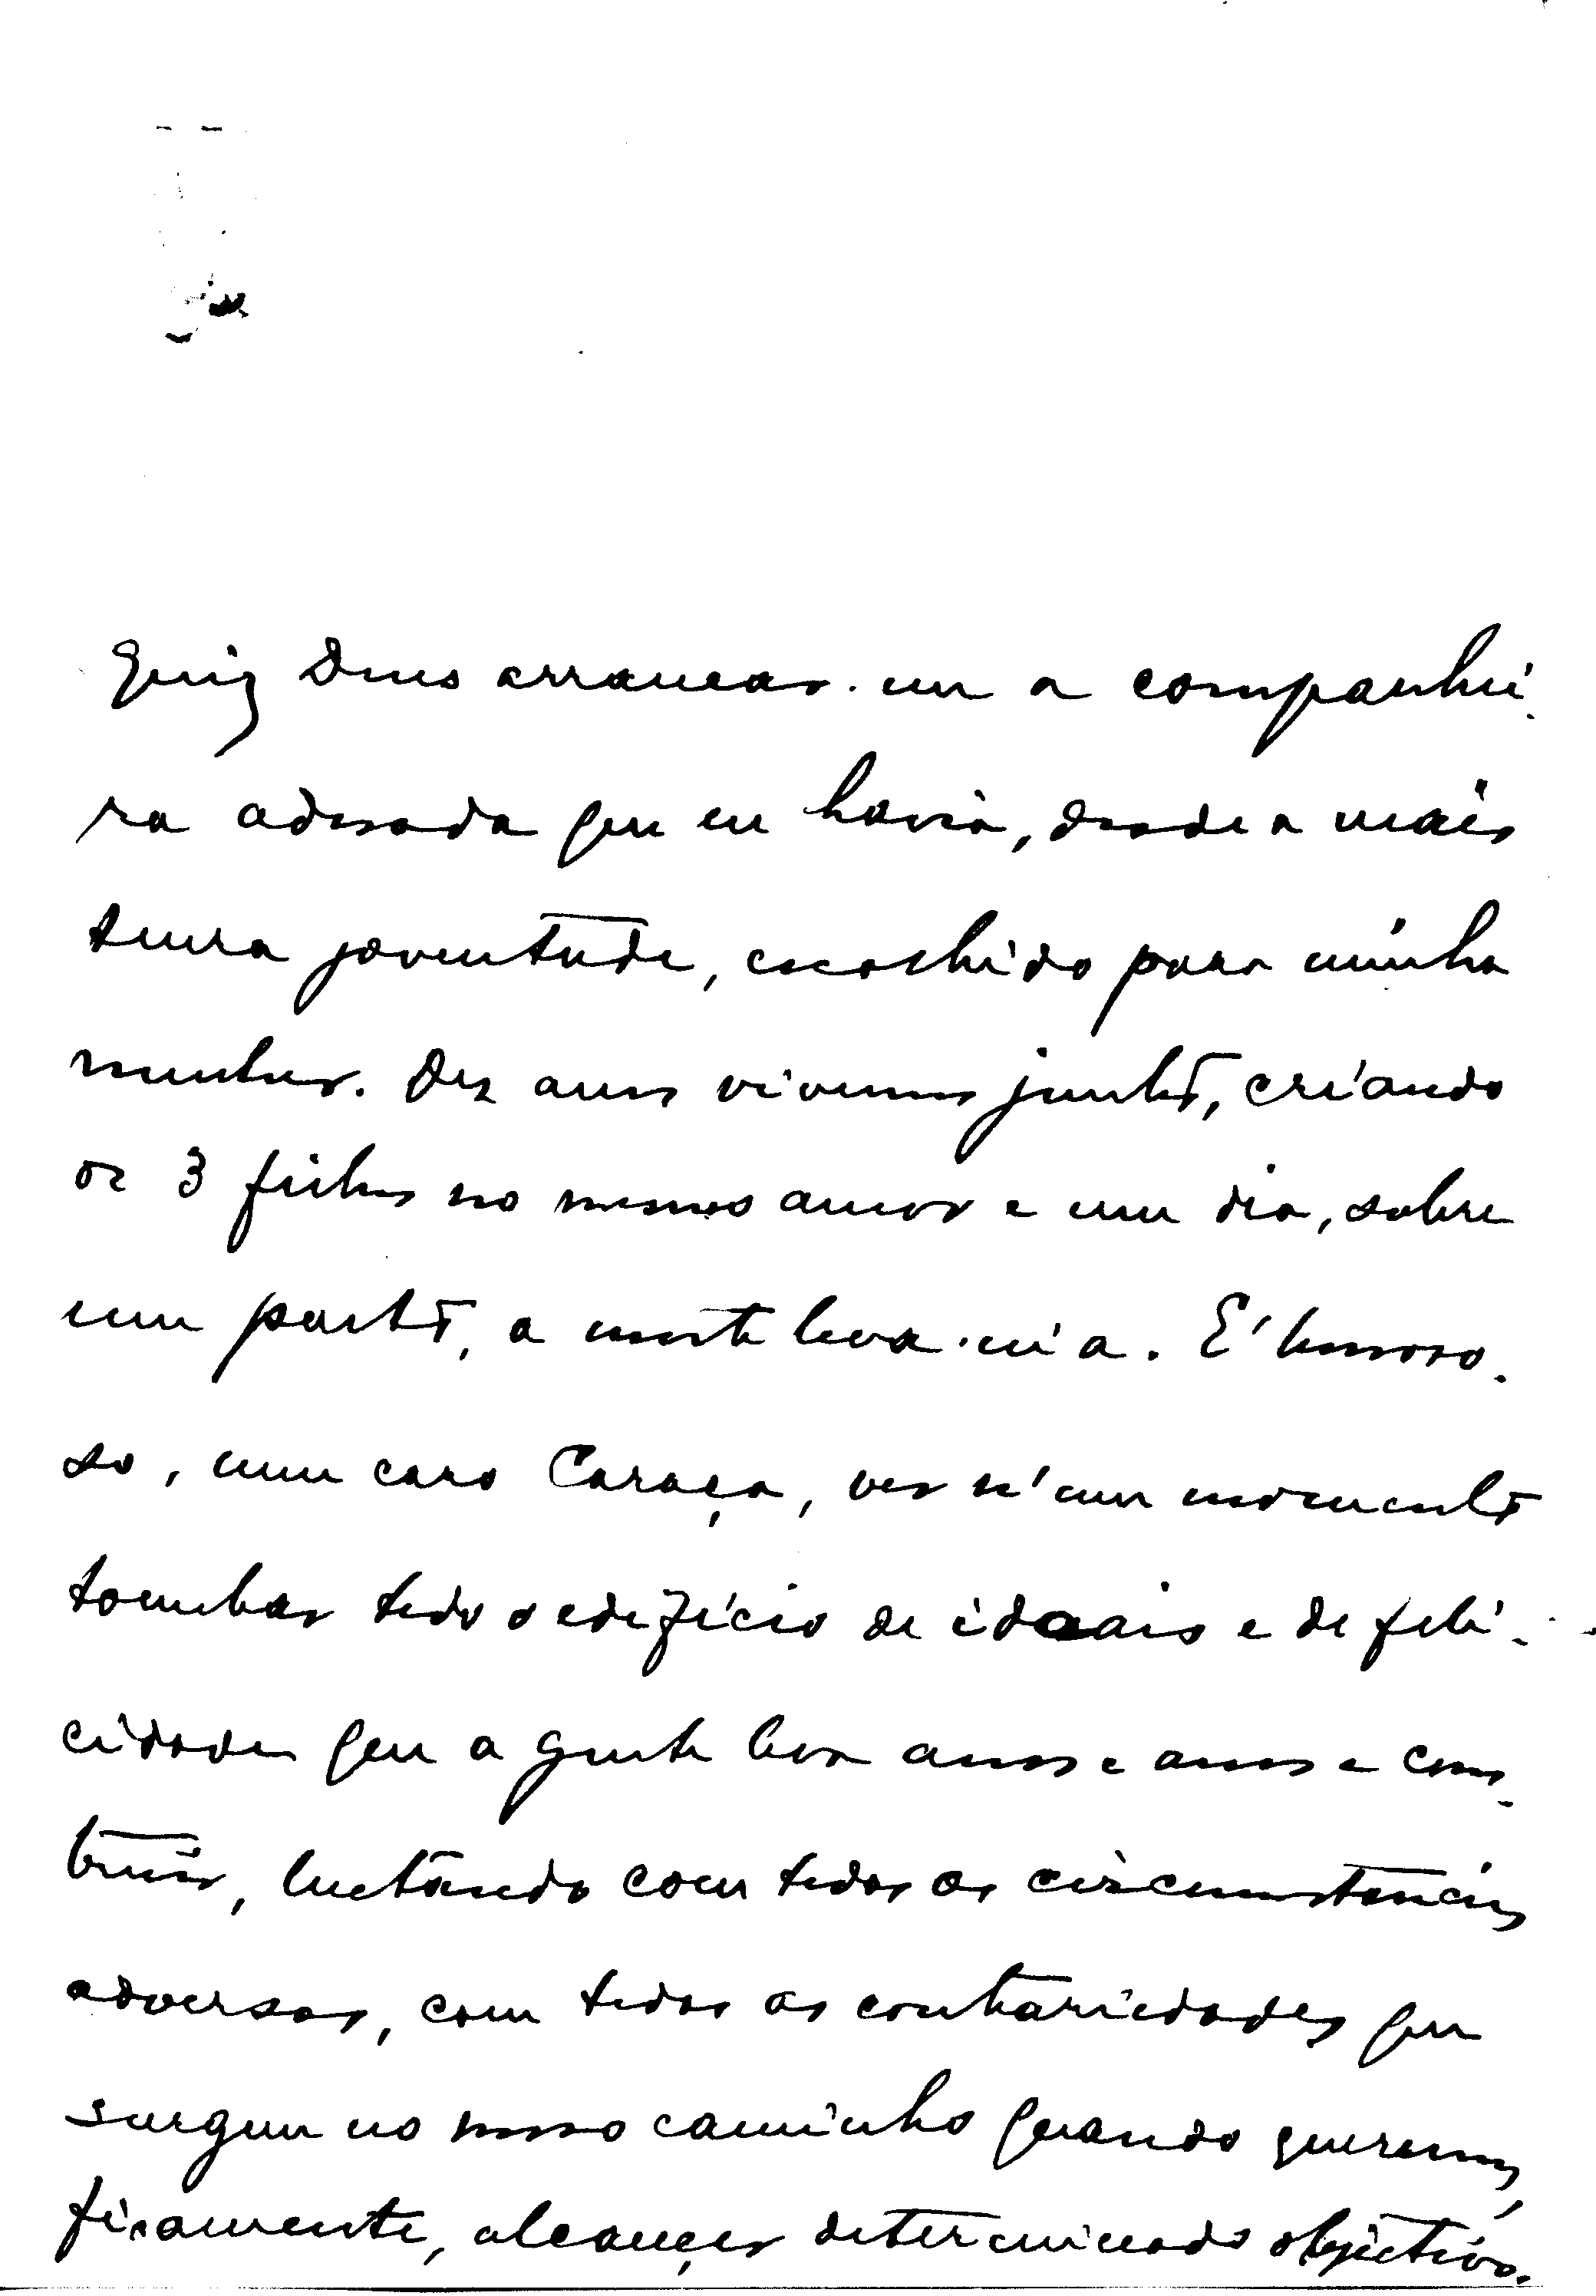 Quiz Deus arrancar-me a companhei-
ra adorada que eu havia, desde a mais
tenra joventude, escolhido para minha
mulher. Dez anos vivemos juntos, criando
os 3 filhos no nosso amor e um dia, sobre
um parto, a morte leva-m'a. É horroro-
so, meu caro Caraça, ver n'um momento
tombar todo o edifício de ideais e de feli-
cidades que a gente leva anos e anos a cons-
truir, luctando com todas as circumstancias
adversas, com todas as contrariedades que
surgem no nosso caminho quando queremos,
fixamente, alcançar determinado objectivo.